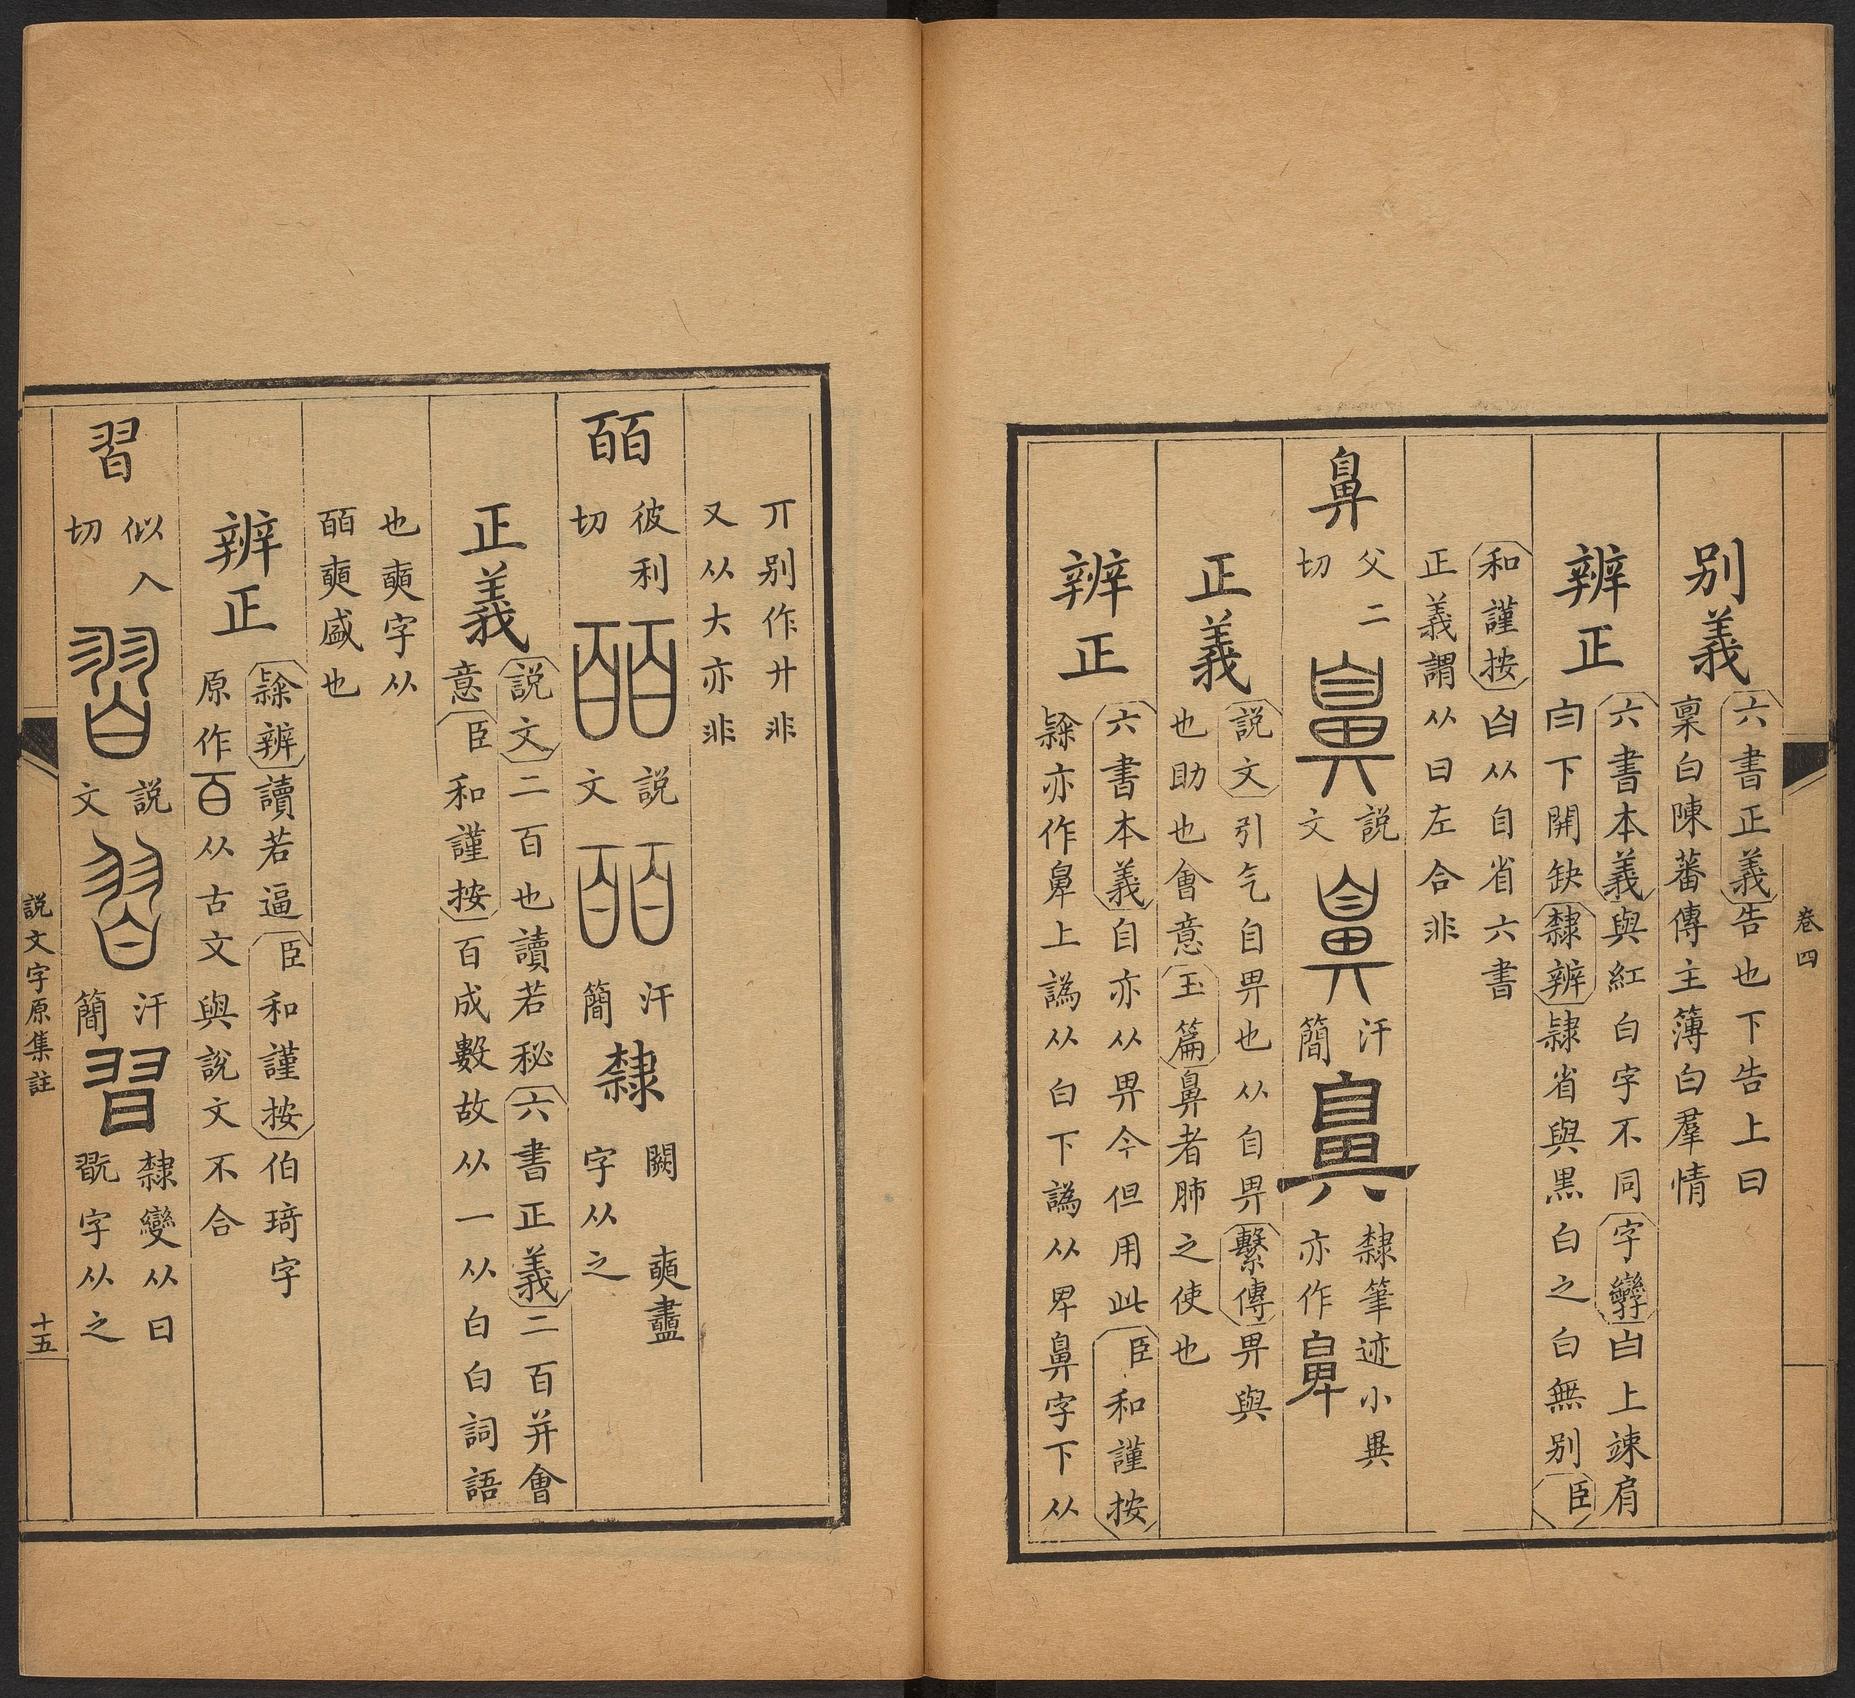 卷四
别義
六書正義告也下告上曰
稟白陳蕃傳主簿白羣情
辨正
六書本義與紅白字不同字孿白上竦肩
白下開缺隸辨隸省與黑白之白無别臣
和謹按白从自省六書
正義謂从曰左合非
鼻
父二
切
說
文
汗
簡
隸筆迹小異
亦作
正義
說文引气自畀也从自畀繫傳畀與
也助也會意玉篇鼻者肺之使也
辨正
六書本義自亦从畀今但用此臣和謹按
亦作鼻上譌从白下譌从卑鼻字下从
丌别作廾非
又从大亦非
皕
彼利
切
說
文
汗
簡
隸
闕
奭衋
字从之
正義
說文二百也讀若秘六書正義二百并會
意臣和謹按百成數故从一从白白詞語
也奭字从
皕奭盛也
辨正
辨讀若逼臣和謹按伯琦字
原作百从古文與說文不合
習
似入
切
說
文
汗
簡
隸變从曰
翫字从之
說文字原集註
十五